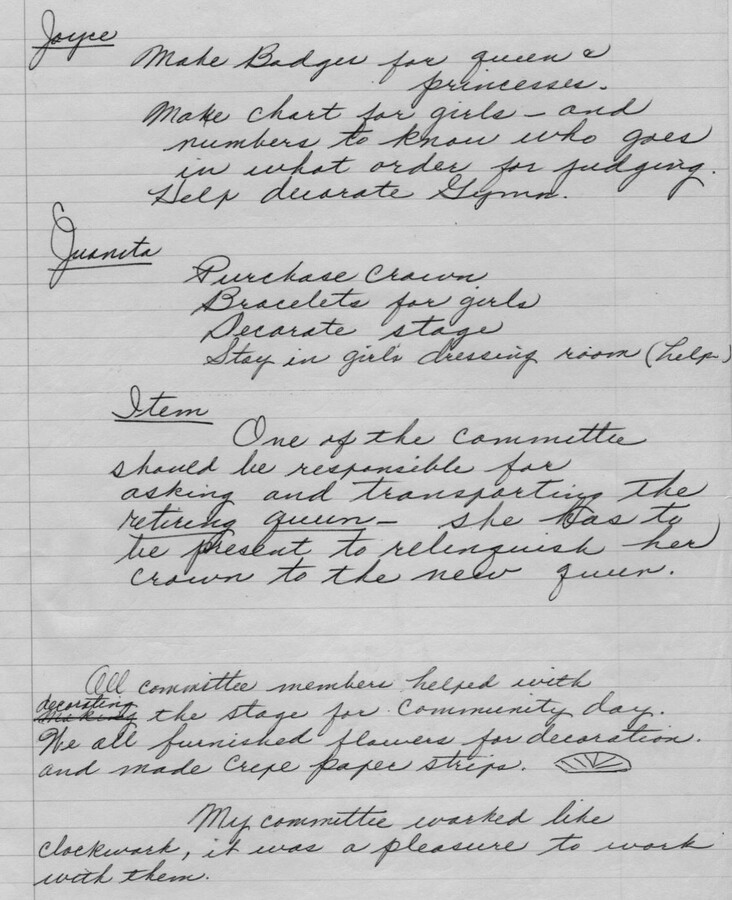 Joyce
Make Badges for queen &
princesses.
Make chart for girls – and
numbers to know who goes
in what order for judging.
Help decorate Gymn.
Juanita
Purchase Crown
Bracelets for girls
Decorate stage
Stay in girls dressing room (help)
Item
One of the committee
should be responsible for
asking and transporting the
retiring queen – she has to
be present to relinquish her
crown to the new queen.
All committee members helped with
decorating
making the stage for Community day.
We all furnished flowers for decoration.
and made Crepe paper strips.
My committee worked like
clockwork, it was a pleasure to work
with them.